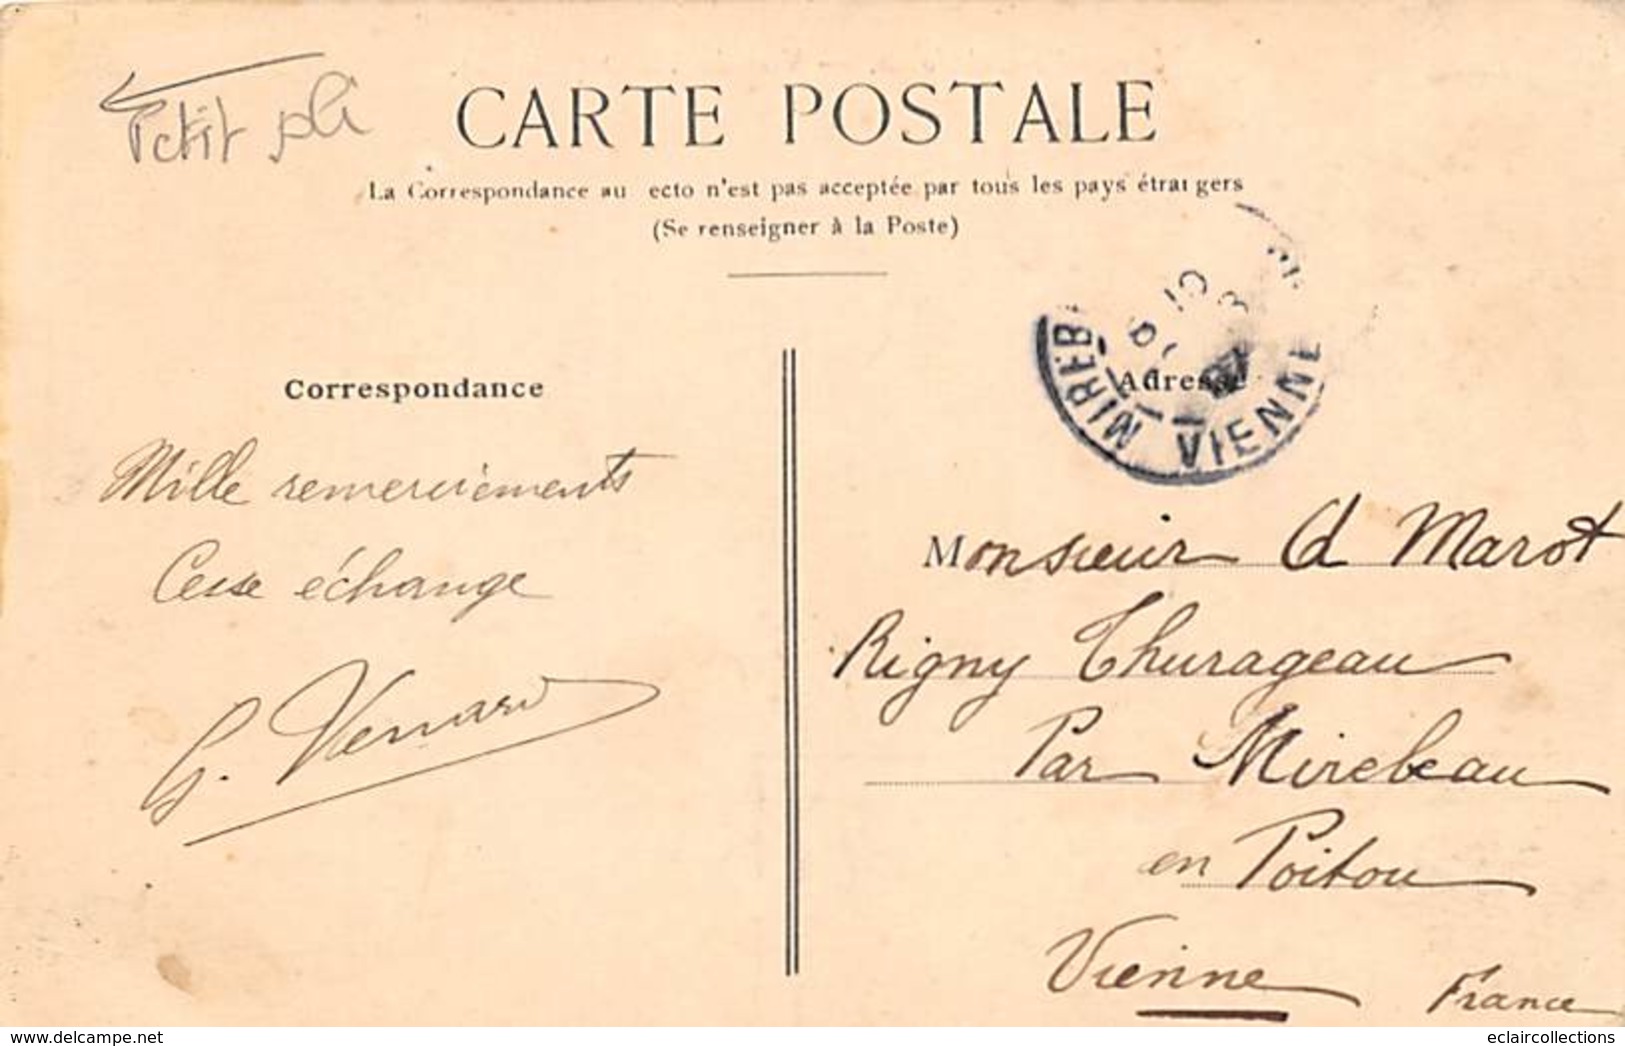 Petit pli
CARTE POSTALE
La Correspondance au ecto n'est pas acceptée par tous les pays étrangers
(Se renseigner à la Poste)
Correspondance
Mille remerciements
Cesse échange
G. Venard
MIREB
VIENNE
Adresse
Monsieur A Marot
Rigny Thurageau
Par Mirebeau
en Poitou
Vienne
France
delcampe.net
eclaircollections